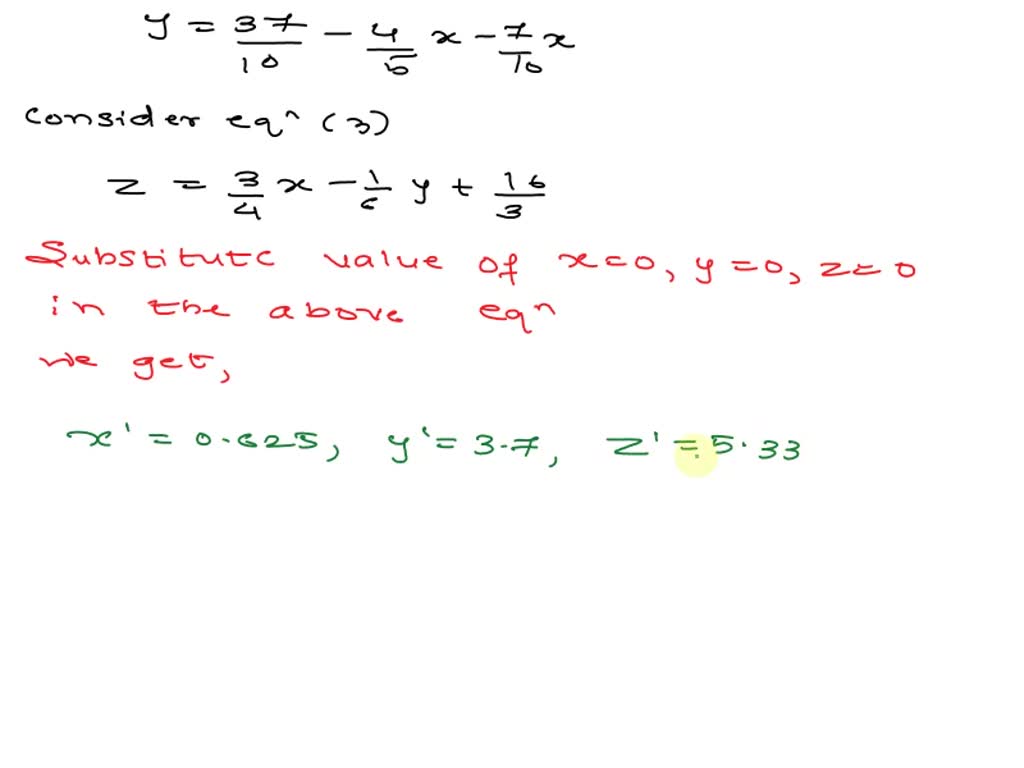 y = 37/10 - 4/5 x - 7/10 x
consider eqn (3)
z = 3/4 x - 1/6 y + 16/3
Substitute value of x=0, y=0, z=0
in the above eqn
we get,
x' = 0.625, y' = 3.7, z' = 5.33